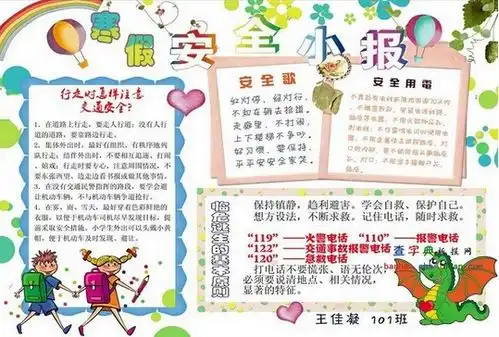 寒假安全小报
行走时怎样注意
交通安全?
1、在道路上行走,要走人行道;没有人行
道的道路,要靠路边行走。
2、集体外出时,最好有组织、有秩序地列
队行走;结伴外出时,不要相互追逐、打闹
、嬉戏;行走时要专心,注意周围情况,不
要东张西望、边走边看书报或做其他事情。
3、在没有交通民警指挥的路段,要学会避
让机动车辆,不与机动车辆争道抢行。
4、在雾、雨、雪天,最好穿着色彩鲜艳的
衣服,以便于机动车司机尽早发现目标,提
前采取安全措施。小学生外出可以头戴小黄
帽,便于机动车及时发现、避让。
安全歌
红灯停,绿灯行,
不和在朝去捡猎,
走廊里,不打闹,
上下楼梯不争吵,
好习惯,要保持,
平平安安全家笑。
安全用電
临危逃生的基本原则
保持镇静,趋利避害。学会自救、保护自己。
想方设法,不断求救。记住电话,随时求救。
"119" ——火警电话 "110" ——报警电话
"122" ——交通事故报警电话
"120" ——急救电话
打电话不要慌张、语无伦次
必须要说清地点、相关情况,
显著的特征。
查字典手抄报网
王佳凝 101班